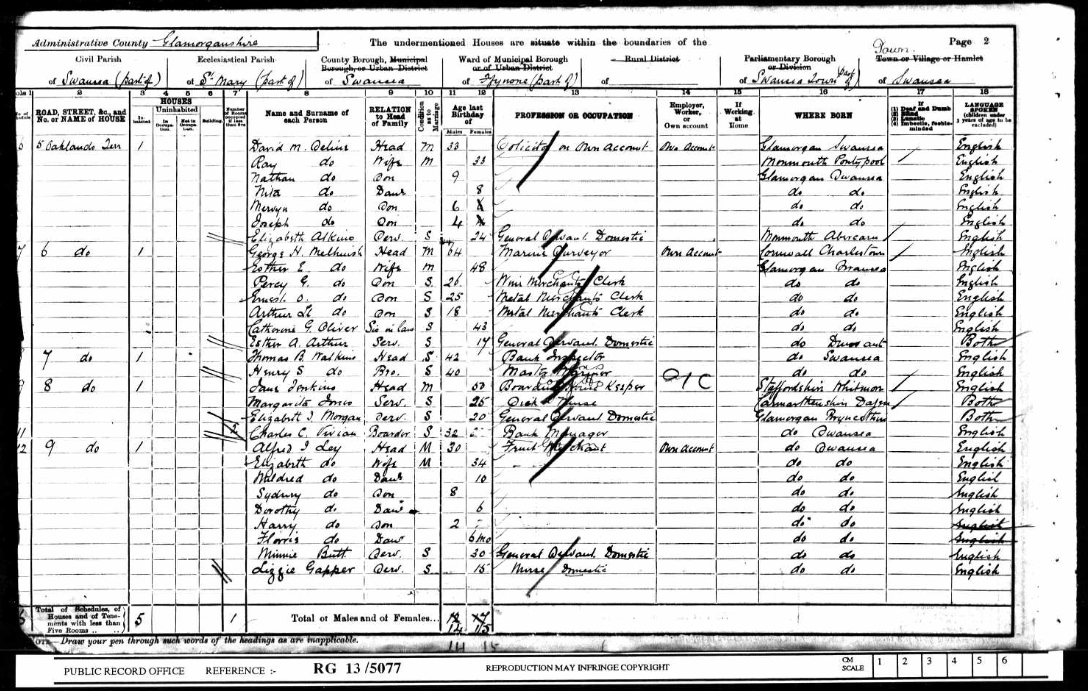 Administrative County Glamorganshire
The undermentioned Houses are situate within the boundaries of the
Page 2
Civil Parish
Ecclesiastical Parish
County Borough, Municipal Borough, or Urban District
Ward of Municipal Borough or of Urban District
Rural District
Parliamentary Borough or Division
Town or Village or Hamlet
Town
of Swansea (part of)
of St Mary (part of)
of Swansea
of Ffynone (part of)
of
of Swansea Town (part)
of Swansea
1 2 3 4 5 6 7 8 9 10 11 12 13 14 15 16 17 18
ROAD, STREET, &c., and No. or NAME of HOUSE
HOUSES
Inhabited
Uninhabited
In Occupation
Not in Occupation
Building
Number of Rooms occupied if less than five
Name and Surname of each Person
RELATION to Head of Family
Condition as to Marriage
Age last Birthday of
Males Females
PROFESSION OR OCCUPATION
Employer, Worker, or Own account
If Working at Home
WHERE BORN
If (1) Deaf and Dumb (2) Blind (3) Lunatic (4) Imbecile, feeble-minded
LANGUAGE SPOKEN (children under 3 years of age to be excluded)
5 Oaklands Terr 1 David M. Delius Head M 33 Solicitor on own account Own Account Glamorgan Swansea English
Ray do Wife M 33 Monmouth Pontypool English
Nathan do Son 9 Glamorgan Swansea English
Nita do Daur 8 do do English
Mervyn do Son 6 do do English
Joseph do Son 4 do do English
Elizabeth Atkins Serv. S 24 General Servant Domestic Monmouth Abercarn English
6 do 1 George H. Melhuish Head M 64 Marine Surveyor Own Account Cornwall Charlestown English
Esther E. do Wife M 48 Glamorgan Swansea English
Percy G. do Son S 26 Merchants Clerk do do English
Ernest O. do Son S 25 Metal Merchants Clerk do do English
Arthur do Son S 18 Metal Merchants Clerk do do English
Catherine G. Oliver Sis in law S 43 do do English
Esther A. Arthur Serv. S 17 General Servant Domestic do Both
7 do 1 Thomas B. Watkins Head S 42 Bank Inspector do Swansea English
Henry S do Bro. S 40 Master Mariner do do English
8 do 1 Jane Jenkins Head M 50 Boarding House Keeper O/C Staffordshire Whitmore English
Margaret Serv. S 25 Sick Nurse Carmarthenshire Both
Elizabeth J. Morgan Serv. S 20 General Servant Domestic Glamorgan Both
2 Charles E. Vivian Boarder S 32 Bank Manager do Swansea English
9 do 1 Alfred J Ley Head M 30 Fruit Merchant Own Account do Swansea English
Elizabeth do Wife M 34 do do English
Mildred do Daur 10 do do English
Sydney do Son 8 do do English
Dorothy do Daur 6 do do English
Harry do Son 2 do do English
Florrie do Daur 6 mo do do English
Minnie Butt Serv. S 30 General Servant Domestic do do English
Lizzie Gapper Serv. S 15 Nurse Domestic do do English
Total of Schedules, of Houses and of Tenements with less than Five Rooms
5 1
Total of Males and of Females... 12 17
14 15
14 15
NOTE—Draw your pen through such words of the headings as are inapplicable.
PUBLIC RECORD OFFICE REFERENCE :- RG 13 /5077 REPRODUCTION MAY INFRINGE COPYRIGHT
CM SCALE 1 2 3 4 5 6